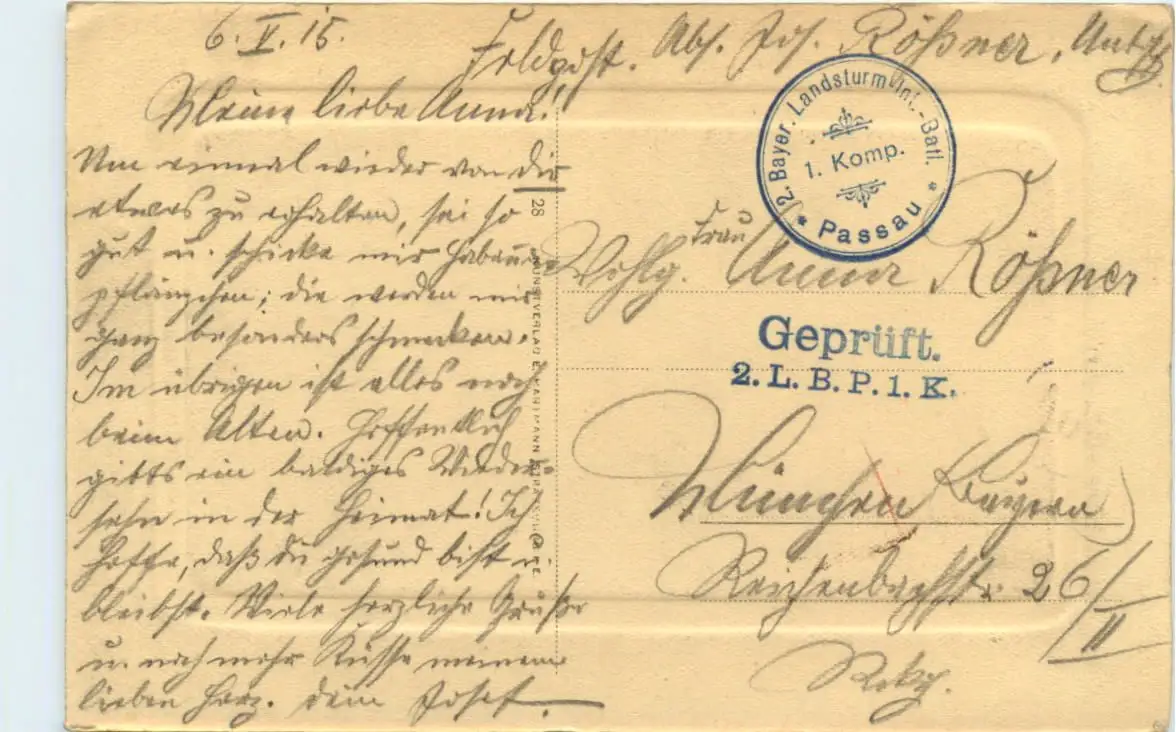 6. V. 15.
Feldpost. Abs. Jos. Rößner, Untffz
Meine liebe Anna!
Um einmal wieder von dir
etwas zu erhalten, sei so
gut u. schicke mir
pflänzchen; die werden mir
ganz besonders schmecken.
Im übrigen ist alles noch
beim Alten. Hoffentlich
gibts ein baldiges Wieder-
sehn in der Heimat! Ich
hoffe, daß du gesund bist u.
bleibst. Viele herzliche Grüße
u. noch mehr Küsse meinem
lieben Herz. dein Josef.
28
KUNSTVERLAG
2. Bayer. Landsturm Inf.-Batl.
1. Komp.
* Passau *
Frau
Wohlg. Anna Rößner
Geprüft.
2. L. B. P. 1. K.
München (Bayern)
Reichenbachstr 26/II